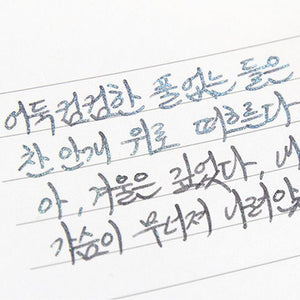 어둑컴컴한 풀없는 들은
찬 안개 위로 떠흐른다
아, 겨울은 깊었다, 내
가슴이 무너져 나려앉